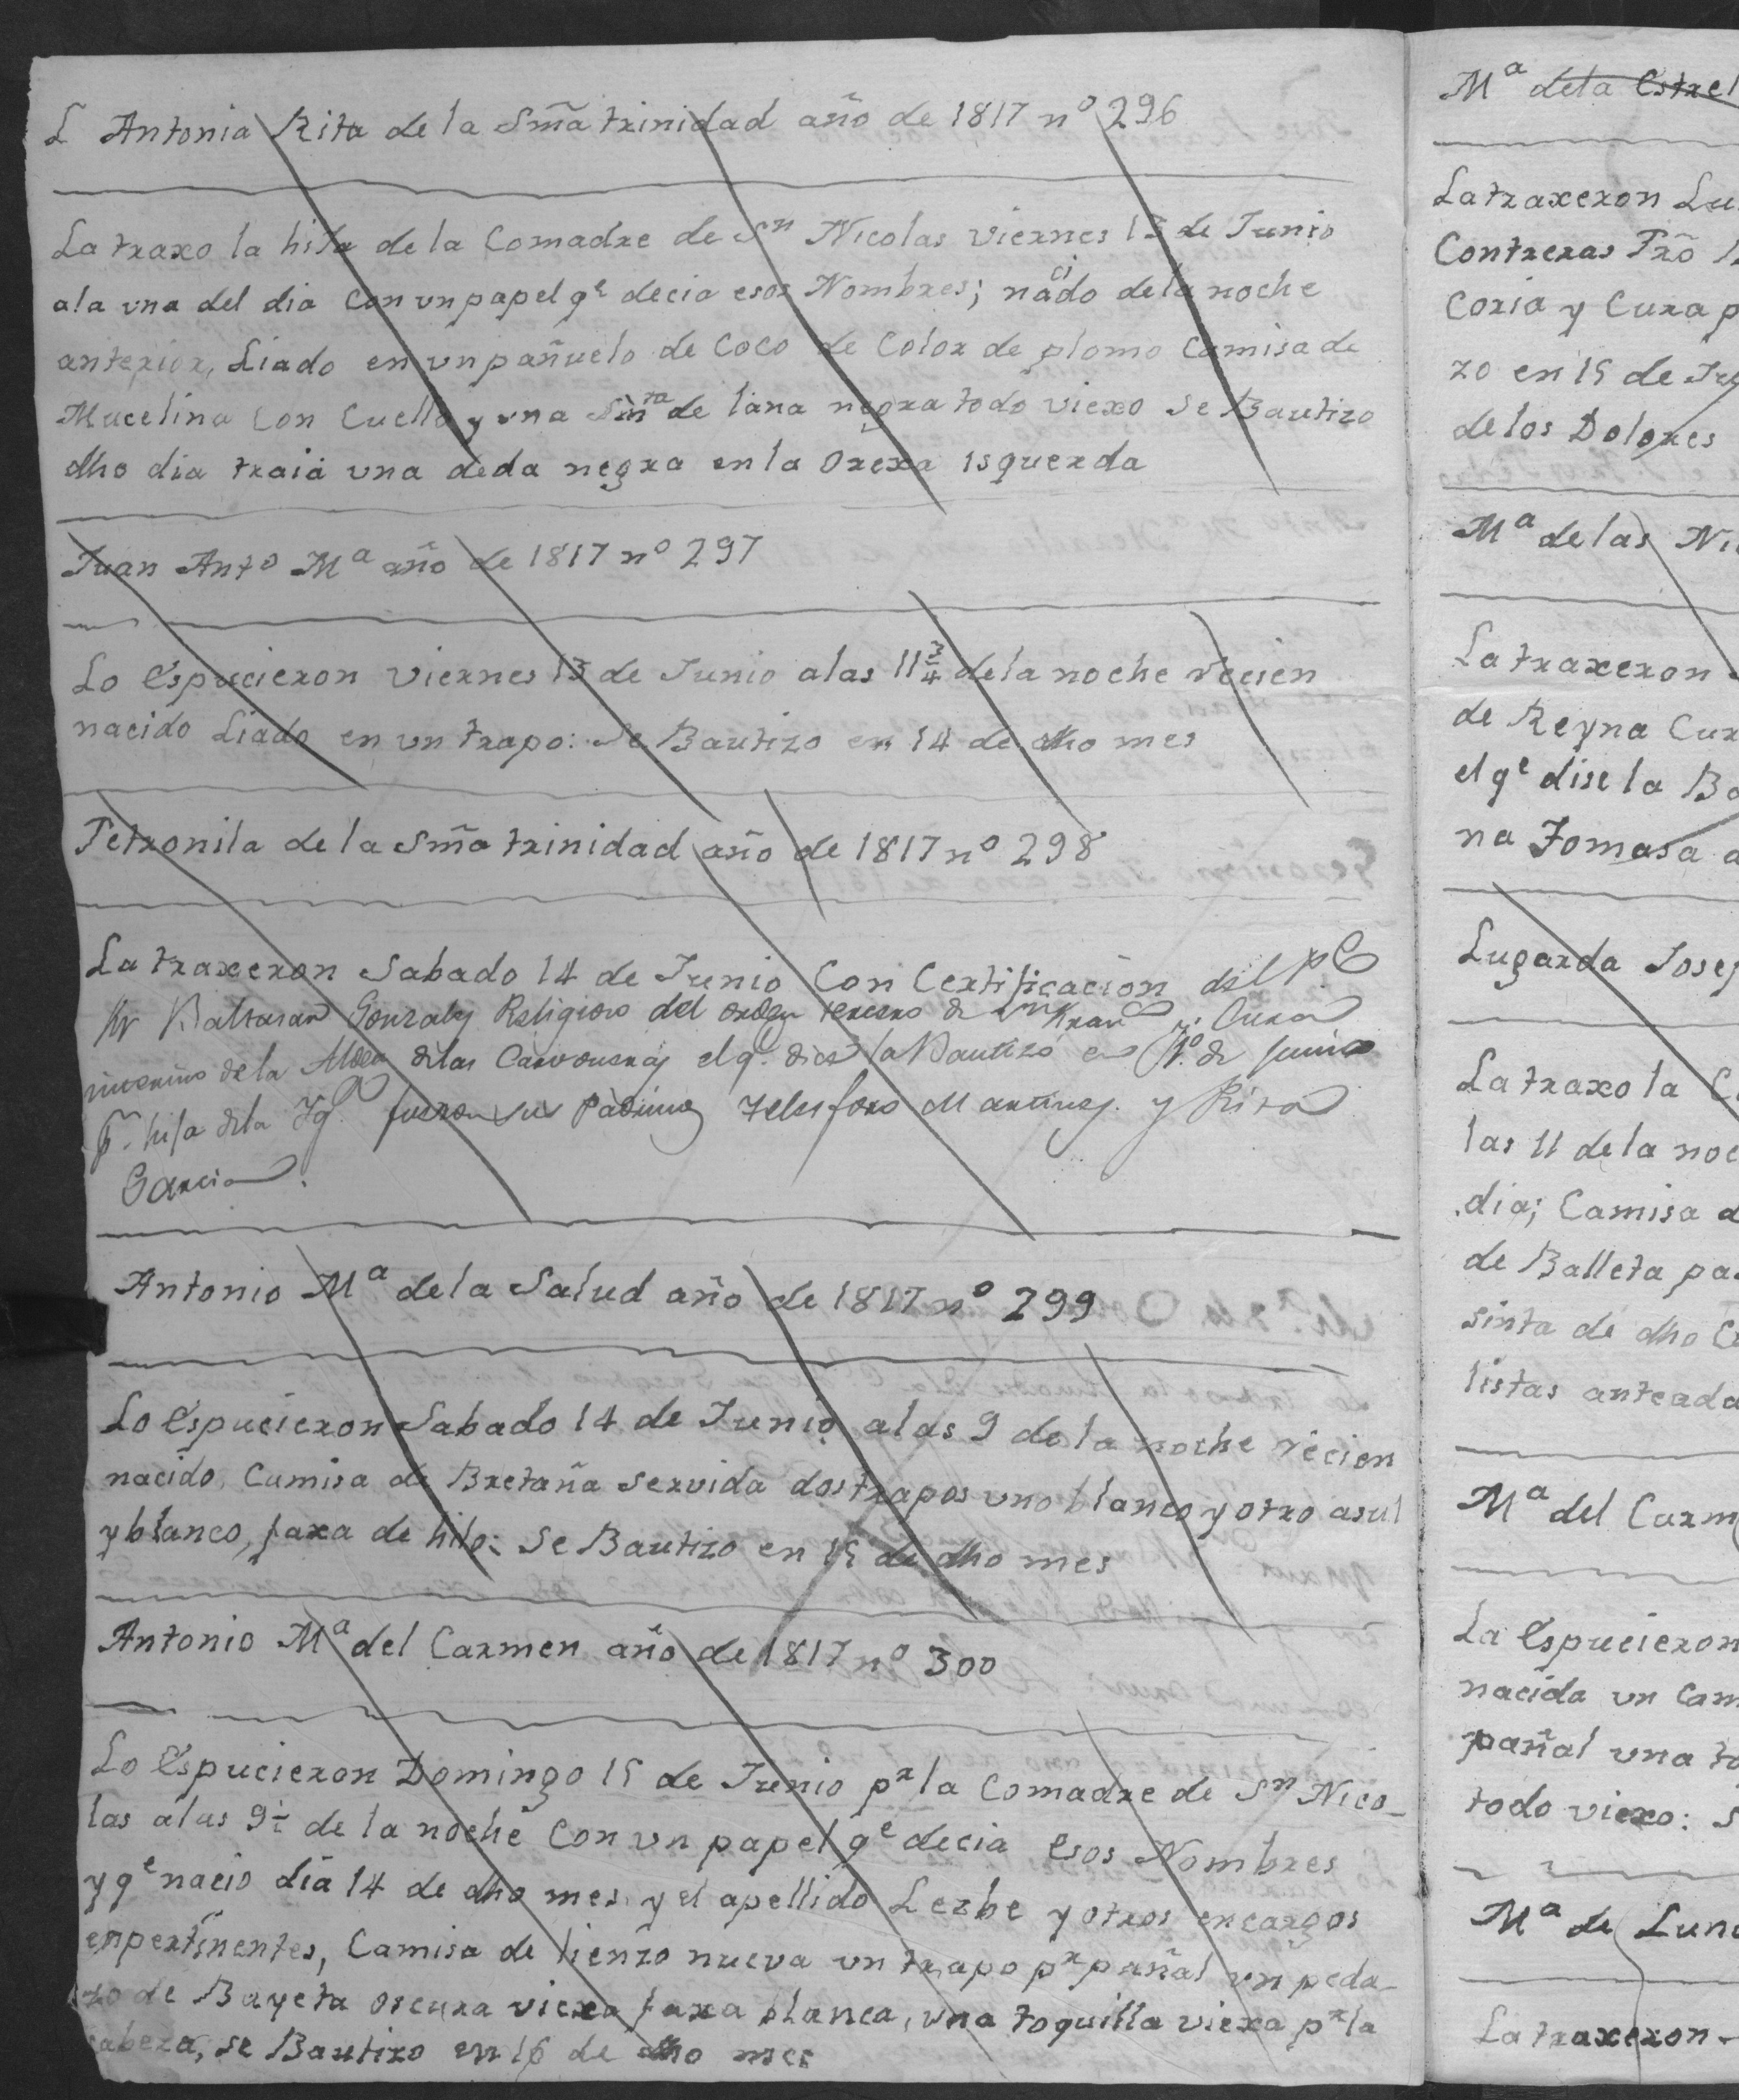 L Antonia Rita de la Smã trinidad año de 1817 nº 296
La traxo la hija de la Comadre de Sn Nicolas viernes 13 de Junio
ala vna del dia Con vn papel qe decia esos Nombres; nacido dela noche
anterior, Liado en vn pañuelo de Coco de Color de plomo Camisa de
Mucelina Con Cuello y vna de lana negra todo viexo se Bautizo
dho dia traia vna deda negra en la Orexa isquerda
Juan Anto Ma año de 1817 nº 297
Lo Espucieron viernes 13 de Junio alas 11 3/4 dela noche recien
nacido Liado en vn trapo: Se Bautizo en 14 de dho mes
Petronila de la Smã trinidad año de 1817 nº 298
La traxeron Sabado 14 de Junio Con Certificacion del
Baltasar Gonzalez Religioso del orden tercero de Sn Fran y Cura
interino de la Aldea delas el q. dice la Bautizó en de Junio
hija dela Yg. fueron sus Padrinos Telesforo Martinez y Rita
Garcia.
Antonio Ma de la Salud año de 1817 nº 299
Lo Espucieron Sabado 14 de Junio alas 9 de la noche recien
nacido, Camisa de Bretaña servida dos trapos vno blanco y otro asul
y blanco, faxa de hilo: Se Bautizo en 15 de dho mes
Antonio Ma del Carmen año de 1817 nº 300
Lo Espucieron Domingo 15 de Junio pr la Comadre de Sn Nico-
las alas 9½ de la noche Con vn papel qe decia Esos Nombres
y qe nacio dia 14 de dho mes y el apellido Lezbe y otros encargos
enpertinentes, Camisa de lienzo nueva vn trapo pr pañal vn peda-
zo de Bayeta oscura viexa faxa blanca, vna toquilla viexa pr la
cabeza, se Bautizo en 16 de dho mes
Ma dela Estrel
La traxeron Lu
Contreras Prõ
Coria y Cura p
zo en 15 de
de los Dolores
Ma de las Ni
La traxeron
de Reyna Cur
el qe dise la Ba
na Tomasa a
Lugarda Josef
La traxo la C
las 11 de la noc
dia; Camisa d
de Balleta pa
sinta de dho C
listas anteada
Ma del Carm
La Espucieron
nacida vn Cam
pañal vna to
todo viexo: S
Ma de Lun
La traxeron